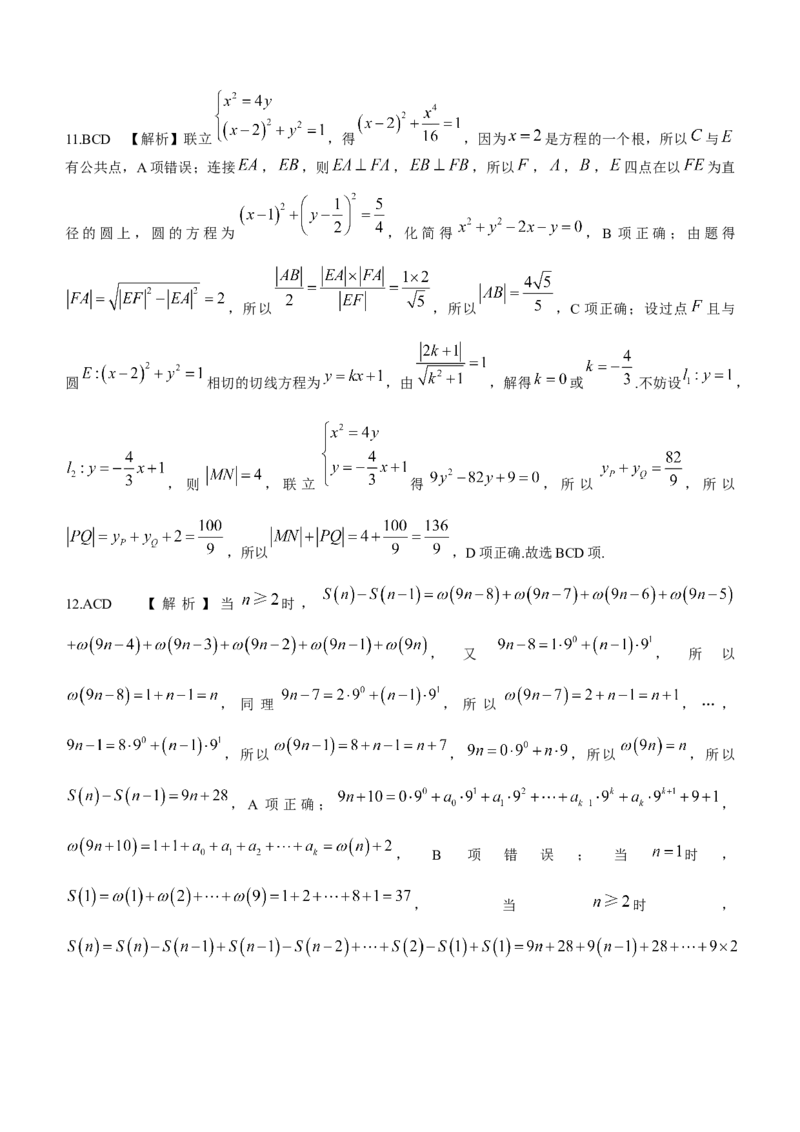 11.BCD 【解析】联立 { x² = 4y, (x−2)² + y² = 1 ,得 (x−2)² + x⁴/16 = 1 ,因为 x = 2 是方程的一个根,所以 C 与 E
有公共点,A项错误;连接 EA , EB ,则 EA ⊥ FA , EB ⊥ FB ,所以 F , A , B , E 四点在以 FE 为直
径的圆上,圆的方程为 (x−1)² + (y−1/2)² = 5/4 ,化简得 x² + y² − 2x − y = 0 ,B 项正确;由题得
|FA| = √|EF|² − |EA|² = 2 ,所以 |AB|/2 = |EA|×|FA|/|EF| = 1×2/√5 ,所以 |AB| = 4√5/5 ,C 项正确;设过点 F 且与
圆 E:(x−2)² + y² = 1 相切的切线方程为 y = kx+1 ,由 |2k+1|/√k²+1 = 1 ,解得 k = 0 或 k = −4/3 .不妨设 l₁ : y = 1 ,
l₂ : y = −4/3 x+1 ,则 |MN| = 4 ,联立 { x² = 4y, y = −4/3 x+1 得 9y² − 82y + 9 = 0 ,所以 y_P + y_Q = 82/9 ,所以
|PQ| = y_P + y_Q + 2 = 100/9 ,所以 |MN| + |PQ| = 4 + 100/9 = 136/9 ,D项正确.故选BCD项.
12.ACD 【解析】当 n ⩾ 2 时, S(n)−S(n−1) = ω(9n−8)+ω(9n−7)+ω(9n−6)+ω(9n−5)
+ω(9n−4)+ω(9n−3)+ω(9n−2)+ω(9n−1)+ω(9n) ,又 9n−8 = 1·9⁰ +(n−1)·9¹ ,所以
ω(9n−8) = 1+n−1 = n ,同理 9n−7 = 2·9⁰ +(n−1)·9¹ ,所以 ω(9n−7) = 2+n−1 = n+1 ,…,
9n−1 = 8·9⁰ +(n−1)·9¹ ,所以 ω(9n−1) = 8+n−1 = n+7 , 9n = 0·9⁰ + n·9 ,所以 ω(9n) = n ,所以
S(n)−S(n−1) = 9n+28 ,A 项正确; 9n+10 = 0·9⁰ + a₀·9¹ + a₁·9² + ⋯ + a_{k 1}·9ᵏ + a_k·9ᵏ⁺¹ + 9+1 ,
ω(9n+10) = 1+1+a₀+a₁+a₂+⋯+a_k = ω(n)+2 ,B 项错误;当 n = 1 时,
S(1) = ω(1)+ω(2)+⋯+ω(9) = 1+2+⋯+8+1 = 37 ,当 n ⩾ 2 时,
S(n) = S(n)−S(n−1)+S(n−1)−S(n−2)+⋯+S(2)−S(1)+S(1) = 9n+28+9(n−1)+28+⋯+9×2